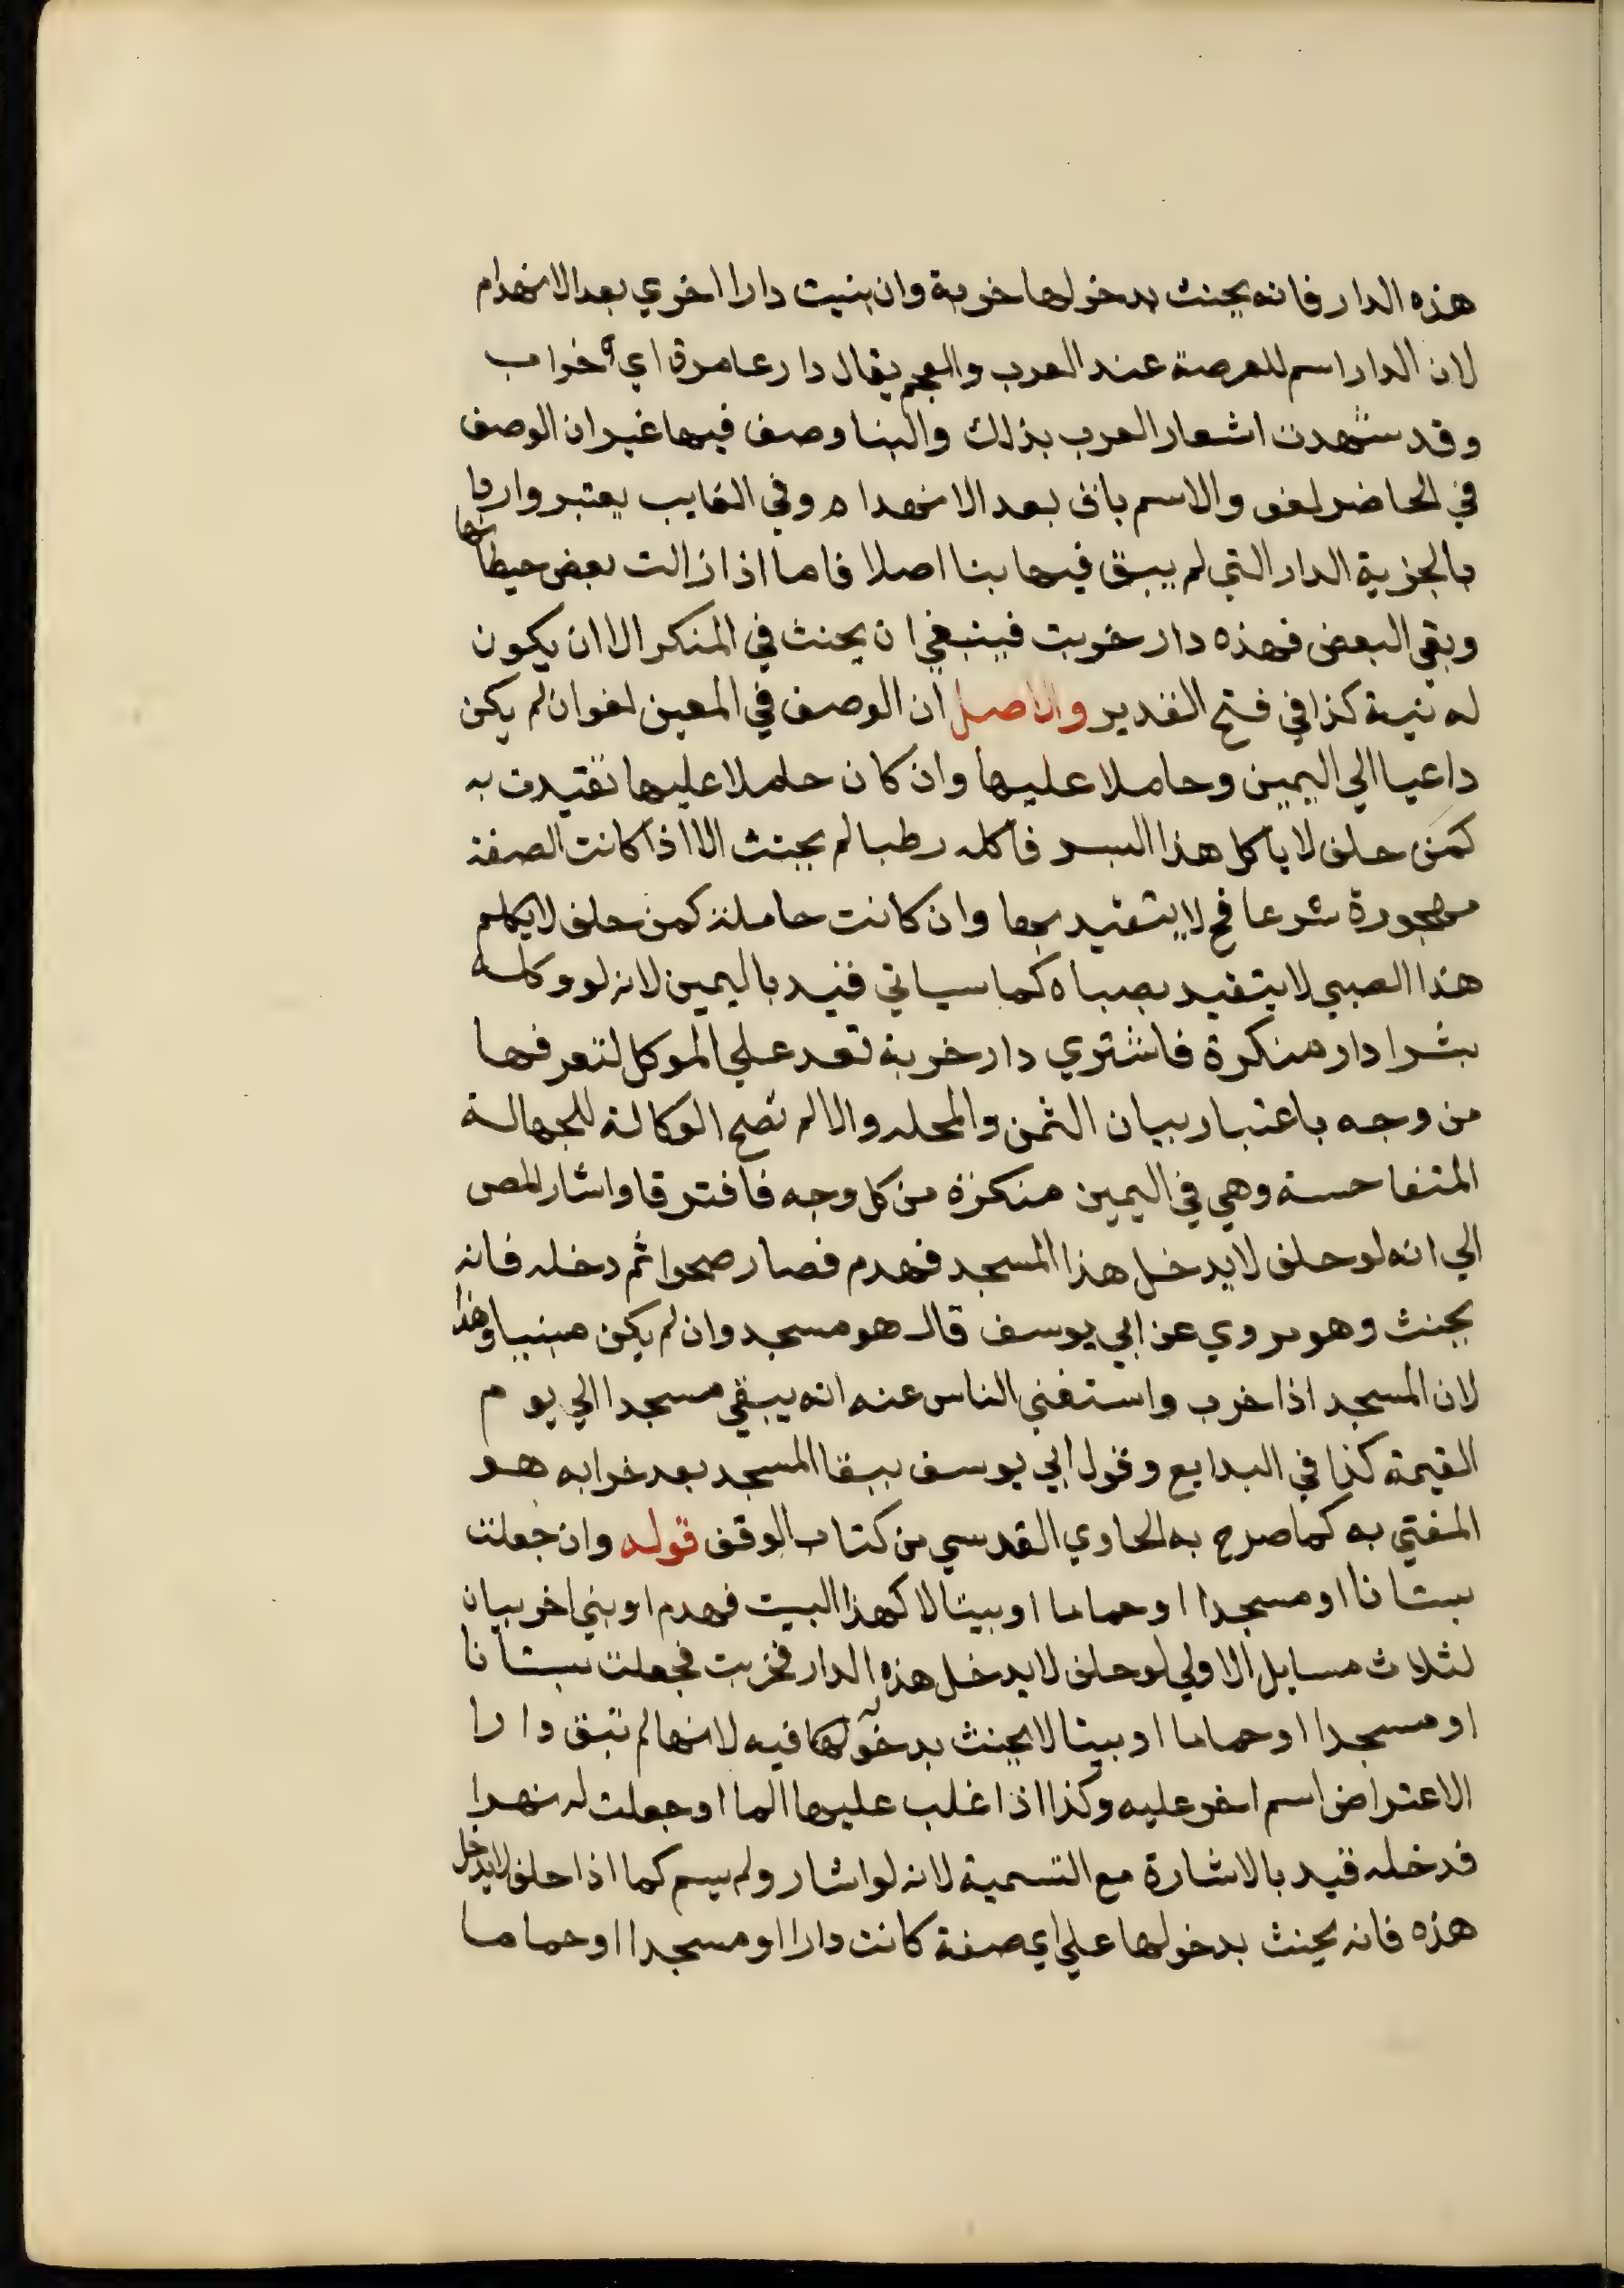 هذه الدار فانه يحنث بدخولها خربة وان بنيت دارا اخري بعد الانهدام
لان الدار اسم للعرصة عند العرب والعجم يقال دار عامرة اي خراب
وقد شهدت اشعار العرب بذلك والبنا وصف فيها غير ان الوصف
في الحاضر لغو والاسم باق بعد الانهدام وفي الغايب يعتبر واراد
بالخربة الدار التي لم يبق فيها بنا اصلا فاما اذا زالت بعض حيطانها
وبقي البعض فهذه دار خربت فينبغي ان يحنث في المنكر الا ان يكون
له نية كذا في فتح القدير والاصل ان الوصف في المعين لغو ان لم يكن
داعيا الي اليمين وحاملا عليها وان كان حاملا عليها تقيدت به
كمن حلف لا ياكل هذا البسر فاكله رطبا لم يحنث الا اذا كانت الصفة
مهجورة شرعا فح لا يتقيد بها وان كانت حاملة كمن حلف لا يكلم
هذا الصبي لا يتقيد بصباه كما سياتي قيد باليمين لانه لو وكله
بشرا دار منكرة فاشتري دار خربة تعد علي الموكل لتعرفها
من وجه باعتبار بيان الثمن والمحله والا لم تصح الوكالة للجهالة
المتفاحسة وهي في اليمين منكرة من كل وجه فافترقا واشار المص
الي انه لو حلف لا يدخل هذا المسجد فهدم فصار صحوا ثم دخله فانه
يحنث وهو مروي عن ابي يوسف قال هو مسجد وان لم يكن مبنيا وهذا
لان المسجد اذا خرب واستغني الناس عنه انه يبقي مسجدا الي يوم
القيمة كذا في البدايع وقول ابي يوسف ببقا المسجد بعد خرابه هو
المفتي به كما صرح به الحاوي القدسي من كتاب الوقف قوله وان جعلت
بستانا او مسجدا او حماما او بيتا لا كهذا البيت فهدم او بني اخر بيان
لثلاث مسايل الاولي لو حلف لا يدخل هذه الدار فخربت فجعلت بستانا
او مسجدا او حماما او بيتا لا يحنث بدخوله فيه لانها لم تبق دارا
الاعتراض اسم اخر عليه وكذا اذا غلب عليها الما او جعلت له نهرا
فدخله قيد بالاشارة مع التسمية لانه لو اشار ولم يسم كما اذا حلف لا يدخل
هذه فانه يحنث بدخولها علي اي صفة كانت دارا او مسجدا او حماما